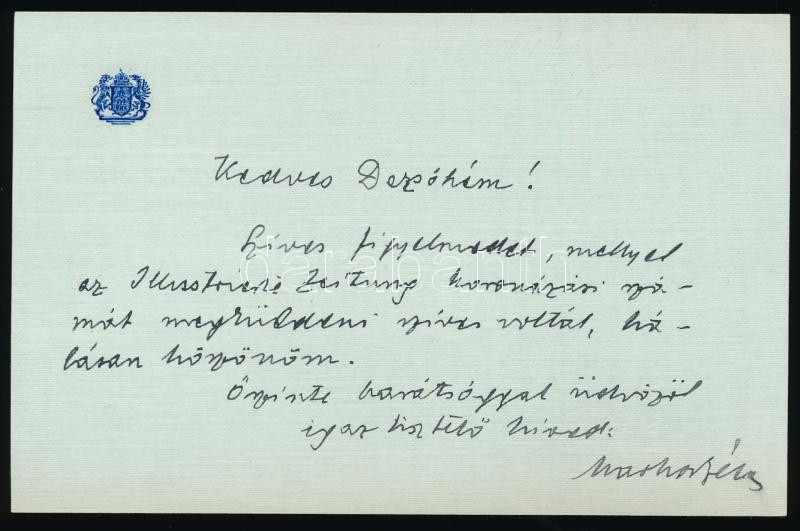 Kedves Dezsőkém!
Szives figyelmedet, mellyel
az Illustrierte Zeitung koronázási szá-
mát megküldeni szives voltál, há-
lásan köszönöm.
Őszinte barátsággal üdvözöl
igaz tisztelő hived:
darabanth